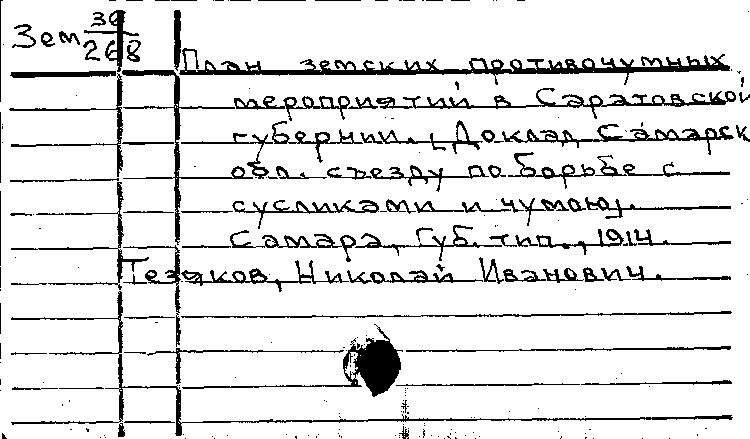 Зем 30/268
План земских противочумных
мероприятий в Саратовской
губернии. [Доклад Самарск
обл. съезду по борьбе с
сусликами и чумою].
Самара, Губ. тип., 1914.
Тезяков, Николай Иванович.